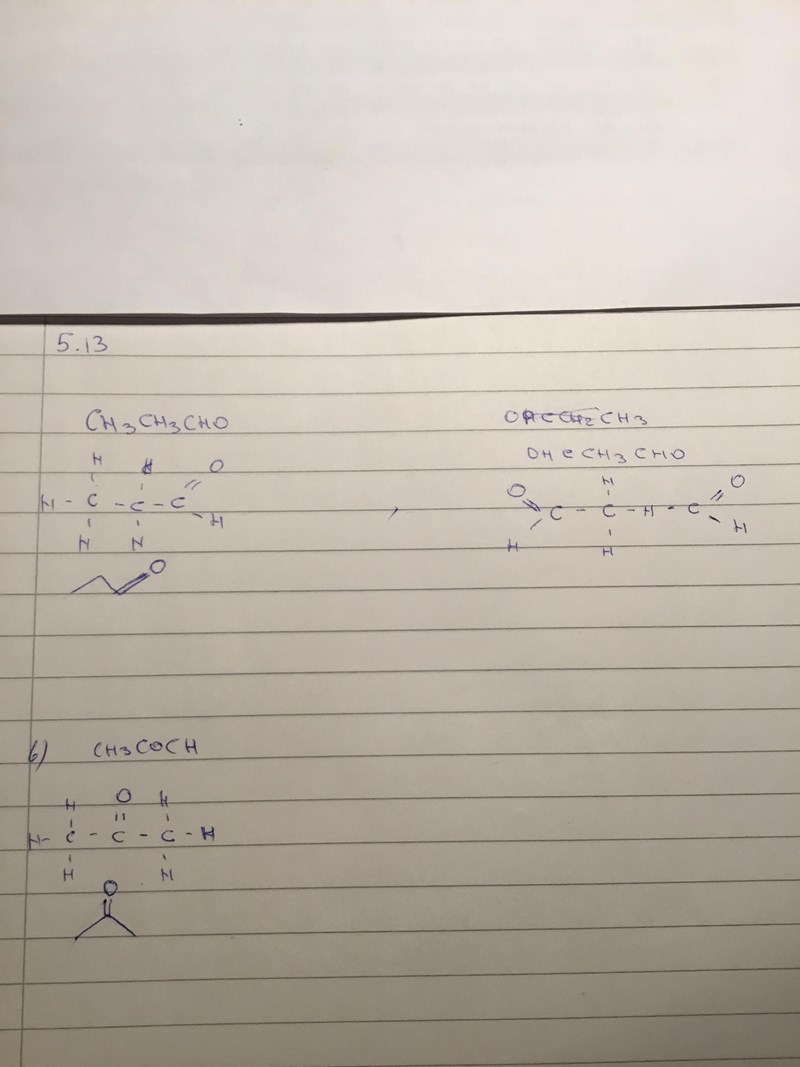 5.13
CH3CH3CHO
OHCCH2CH3
OHCCH3CHO
H H O
H - C - C - C
H H H
O
O H O
C - C - H - C
H H H
6) CH3COCH
H O H
H - C - C - C - H
H H
O